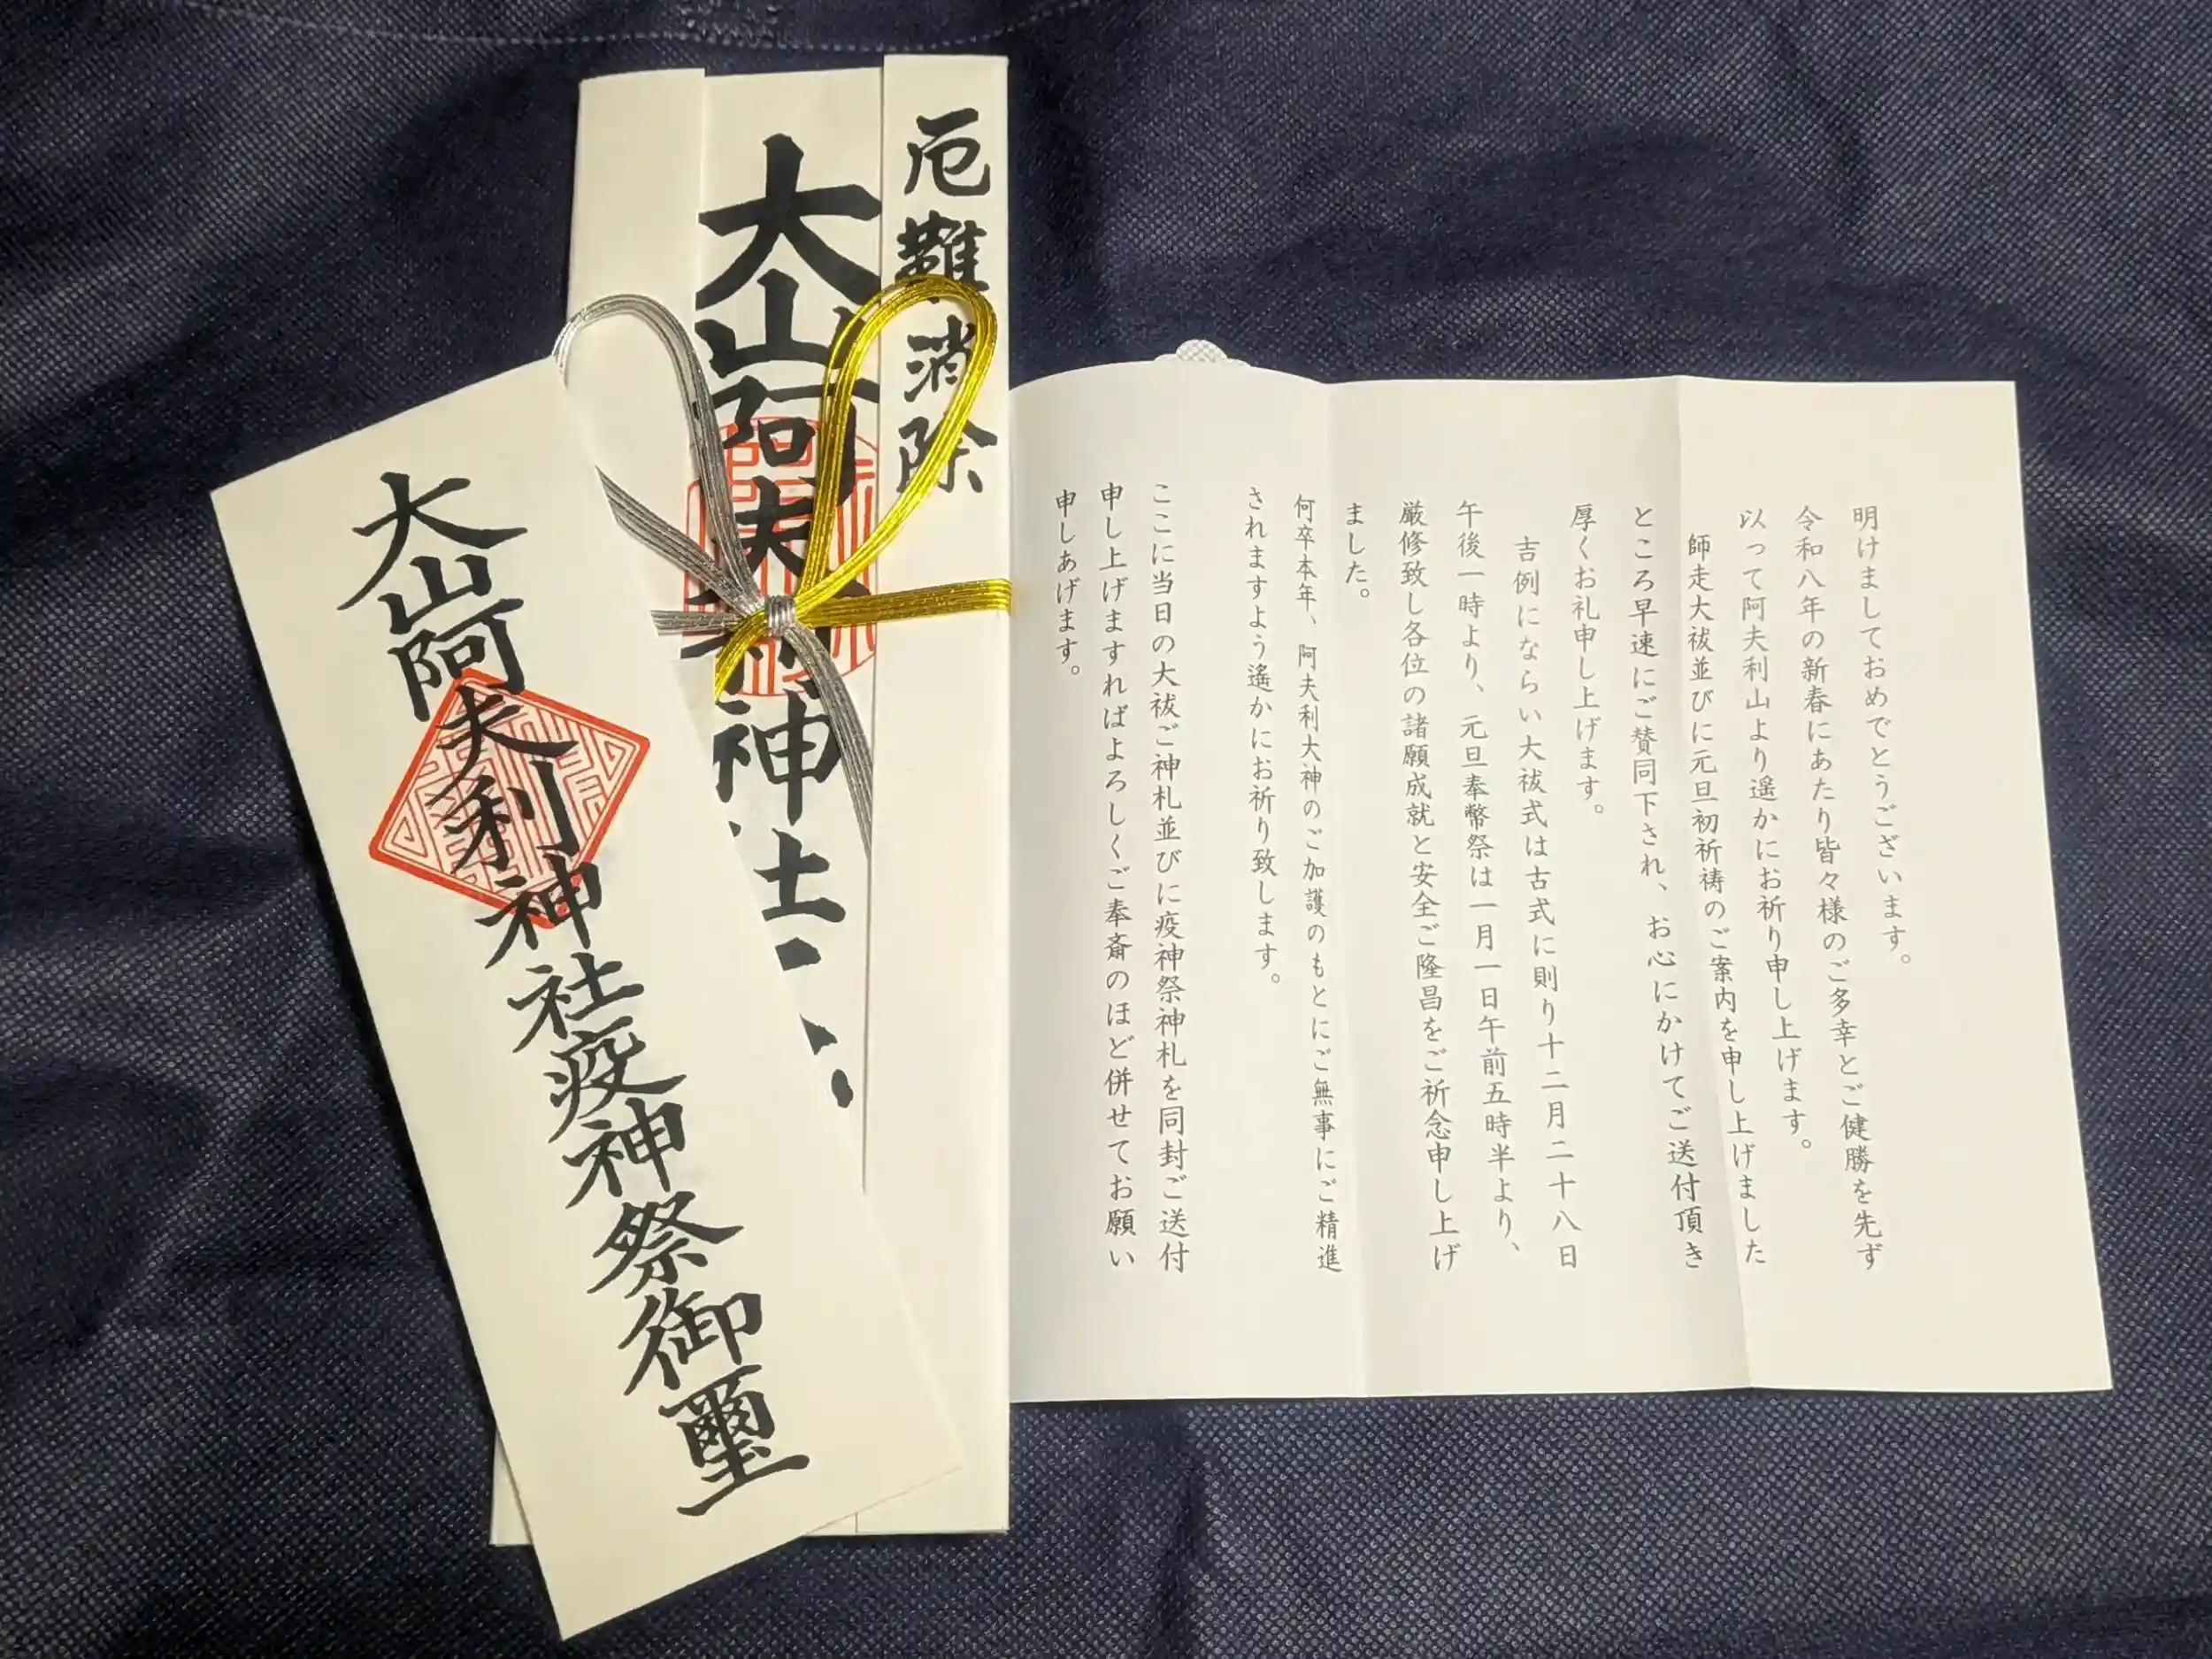 明けましておめでとうございます。
令和八年の新春にあたり皆々様のご多幸とご健勝を先ず
以って阿夫利山より遥かにお祈り申し上げます。
師走大祓並びに元旦初祈祷のご案内を申し上げました
ところ早速にご賛同下され、お心にかけてご送付頂き
厚くお礼申し上げます。
吉例にならい大祓式は古式に則り十二月二十八日
午後一時より、元旦奉幣祭は一月一日午前五時半より、
厳修致し各位の諸願成就と安全ご隆昌をご祈念申し上げ
ました。
何卒本年、阿夫利大神のご加護のもとにご無事にご精進
されますよう遙かにお祈り致します。
ここに当日の大祓ご神札並びに疫神祭神札を同封ご送付
申し上げますればよろしくご奉斎のほど併せてお願い
申しあげます。
厄難消除
大山阿夫利神社
大山阿夫利神社疫神祭御璽